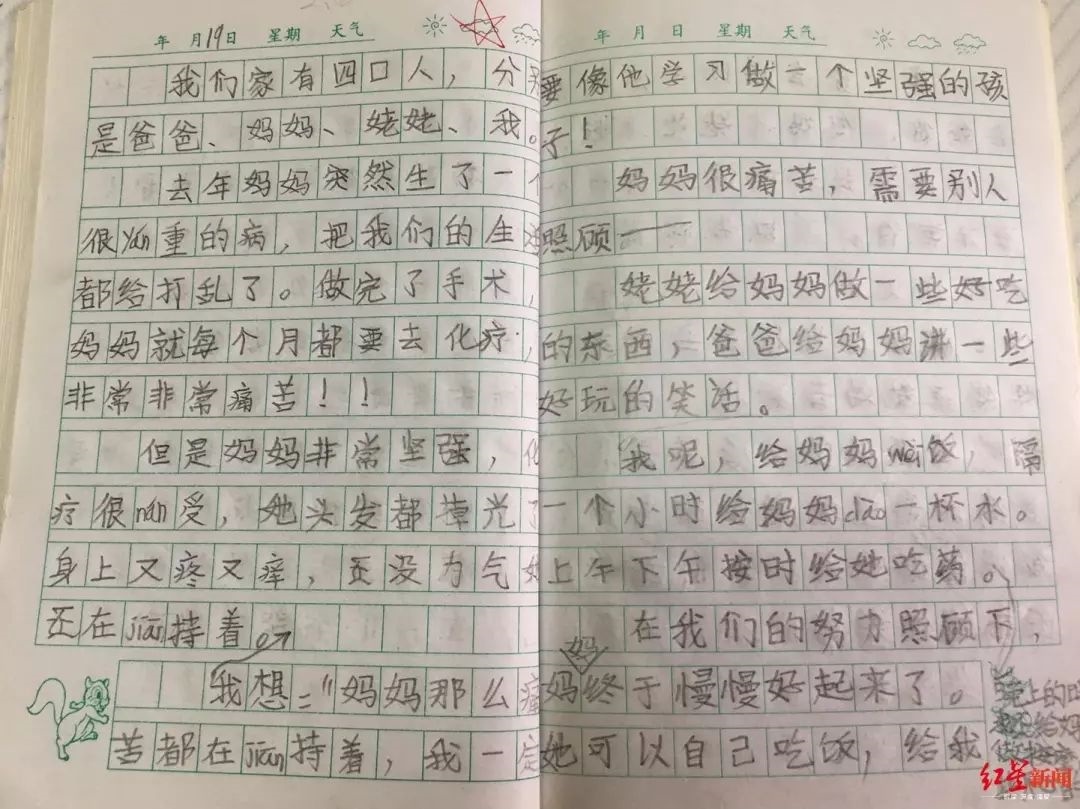 年 月19日 星期 天气
我们家有四口人，分别
是爸爸、妈妈、姥姥、我。
去年妈妈突然生了一个
很yán重的病，把我们的生活
都给打乱了。做完了手术，
妈妈就每个月都要去化疗，
非常非常痛苦！！
但是妈妈非常坚强，化
疗很nán受，她头发都掉光了
身上又疼又痒，还没力气她
还在jiān持着。
我想：“妈妈那么痛
苦都在jiān持着，我一定
年 月 日 星期 天气
要像他学习做一个坚强的孩
子！
妈妈很痛苦，需要别人
照顾——
姥姥给妈妈做一些好吃
的东西，爸爸给妈妈讲一些
好玩的笑话。
我呢，给妈妈wèi饭，隔
一个小时给妈妈dào一杯水。
上午下午按时给她吃药。
在我们的努力照顾下，
妈
妈终于慢慢好起来了。
她可以自己吃饭，给我
晚上的时
给妈
红星新闻